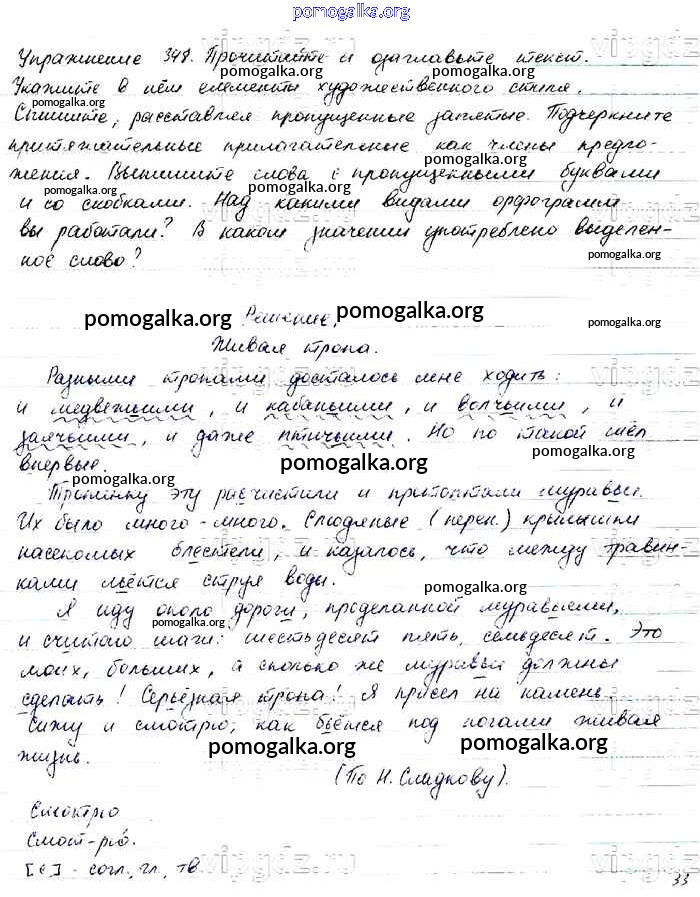 pomogalka.org
Упражнение 348. Прочитайте и озаглавьте текст.
pomogalka.org pomogalka.org
Укажите в нём элементы художественного стиля.
pomogalka.org
Спишите, расставляя пропущенные запятые. Подчеркните
притяжательные прилагательные как члены предло-
pomogalka.org
жения. Выпишите слова с пропущенными буквами
pomogalka.org pomogalka.org
и со скобками. Над какими видами орфограмм
вы работали? В каком значении употреблено выделен-
ное слово?
pomogalka.org
Решение.
pomogalka.org pomogalka.org pomogalka.org
Живая тропа.
Разными тропами досталось мне ходить:
и медвежьими, и кабаньими, и волчьими, и
заячьими, и даже птичьими. Но по такой шёл
впервые.
pomogalka.org pomogalka.org pomogalka.org
Тропинку эту расчистили и притоптали муравьи.
Их было много-много. Слюдяные (перен.) крылышки
насекомых блестели, и казалось, что между травин-
ками льётся струя воды.
pomogalka.org
Я иду около дороги, проделанной муравьями,
и считаю шаги: шестьдесят пять, семьдесят. Это
pomogalka.org
моих, больших, а сколько же муравьи должны
сделать! Серьёзная тропа! Я присел на камень.
Сижу и смотрю, как бьётся под ногами живая
жизнь.
pomogalka.org pomogalka.org
(По Н. Сладкову).
Смотрю
Смот-рю.
[с] - согл., гл., тв.
vipgdz.ru
33